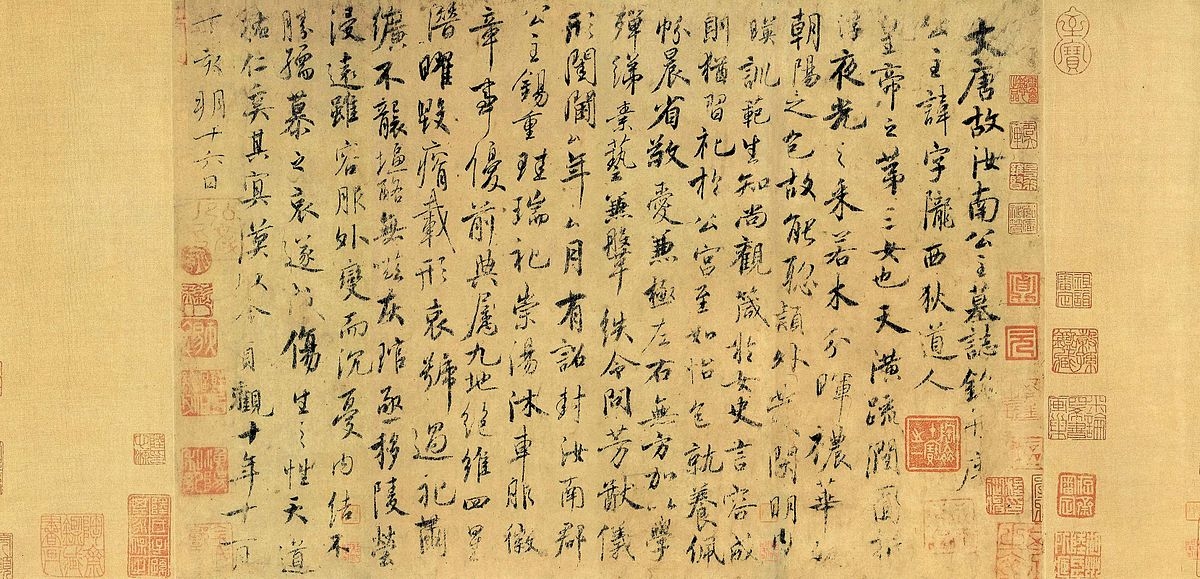 大唐故汝南公主墓誌銘并序
公主諱字隴西狄道人
皇帝之第三女也天潢疏潤圓折
浮夜光之采若木分暉穠華照
朝陽之色故能聡穎外發閑明內
暎訓範生知尚觀箴於女史言容成
則猶習礼於公宮至如怡色就養佩
帉晨省敬愛兼極左右無方加以學
殫綈素藝兼鞶紩令問芳猷儀
形閨閫厶年厶月有詔封汝南郡
公主錫重珪瑞礼崇湯沐車服徽
章事優前典屬九地絕維四星
潛曜毀瘠載形哀號過礼繭
纊不襲塩酪無嗞灰琯亟移陵塋
浸遠雖容服外變而沉憂內結不
勝孺慕之哀遂戍傷生之性天道
祐仁奚其冥漠以今貞觀十年十一月
丁亥朔十六日